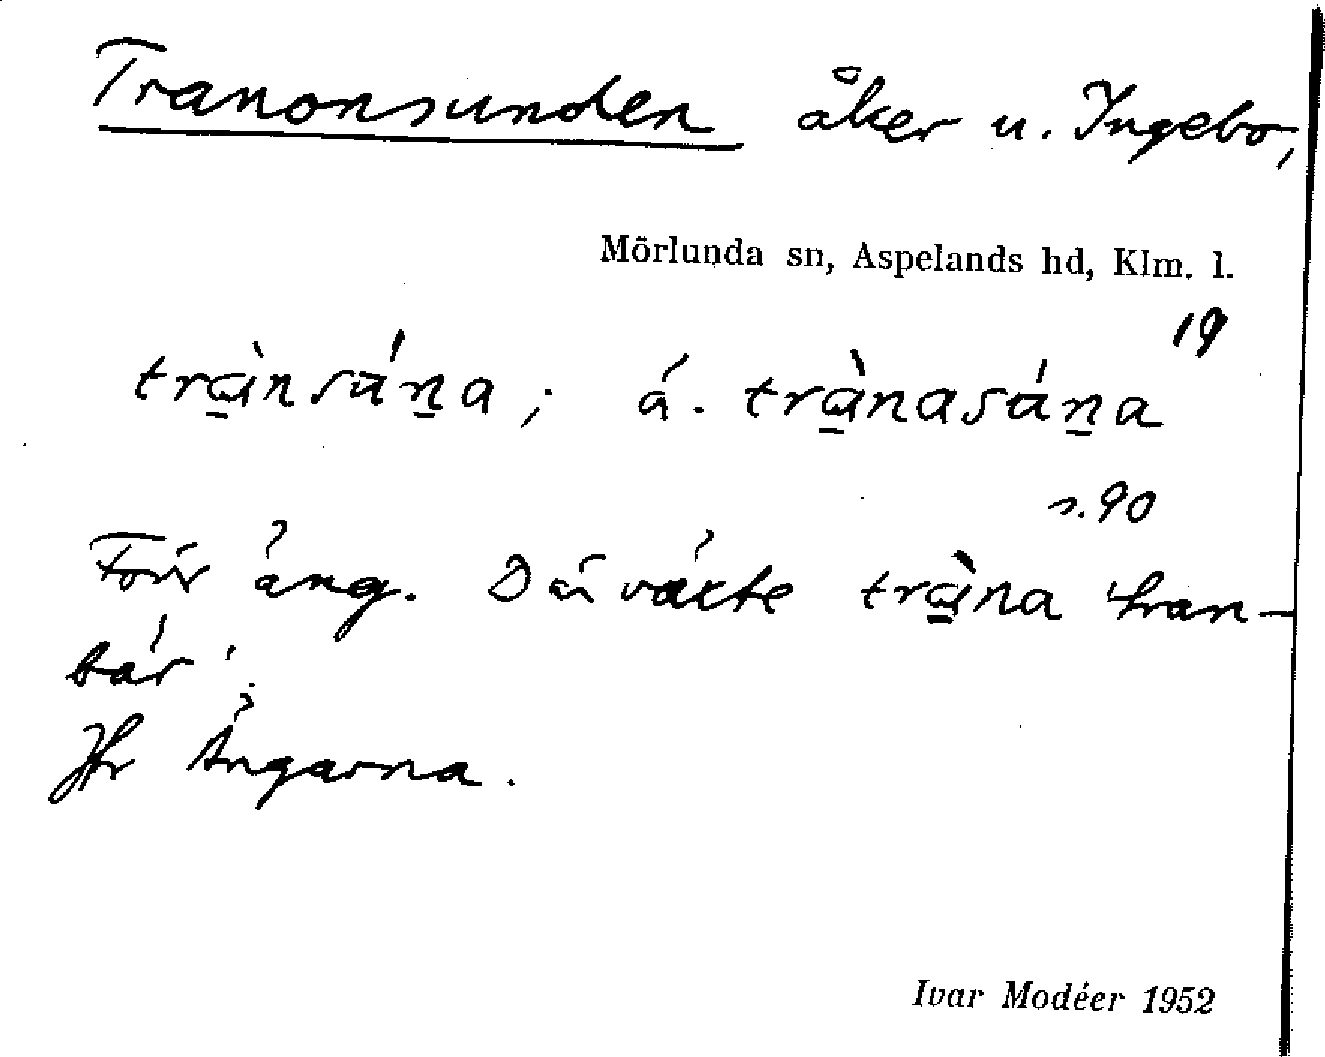 Tranonsunden åker u. Ingebo,
Mörlunda sn, Aspelands hd, Klm. l.
19
trànsúṉa; á. trànasúṉa
s. 90
Förr äng. Där växte tràna 'tran-
bär'.
Jfr Ängarna.
Ivar Modéer 1952